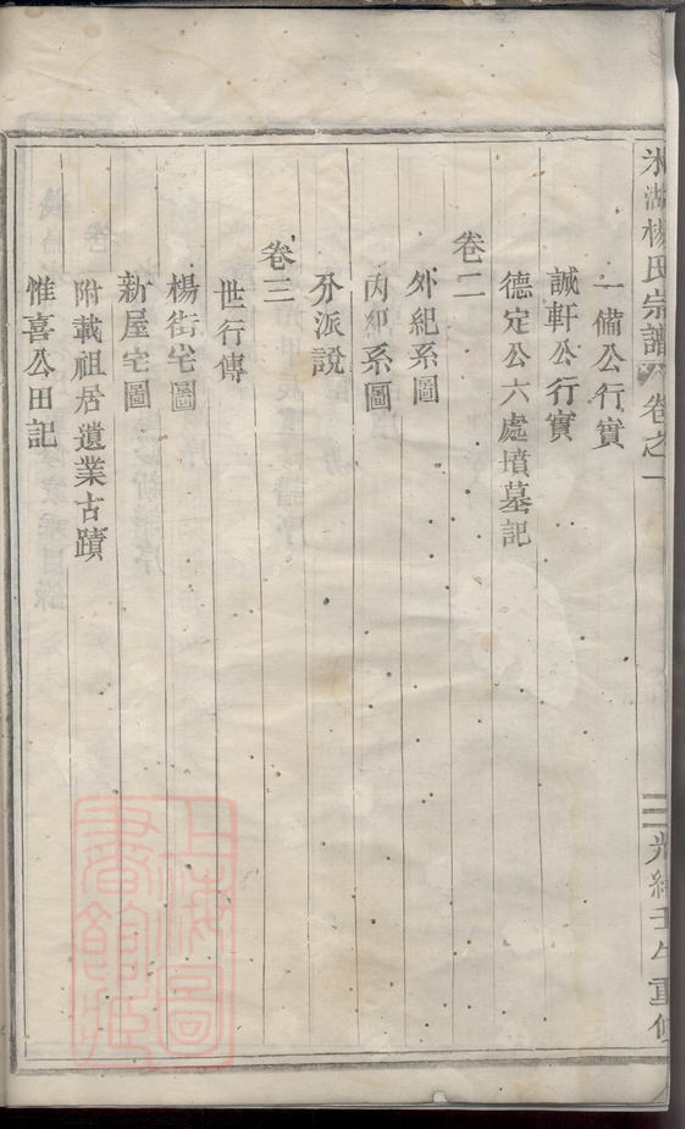 氷湖楊氏宗譜 卷之一 二 光緒壬午重修
一備公行實
誠軒公行實
德定公六處墳墓記
卷二
外紀系圖
內紀系圖
分派說
卷三
世行傳
楊街宅圖
新屋宅圖
附載祖居遺業古蹟
惟喜公田記
上海圖書館